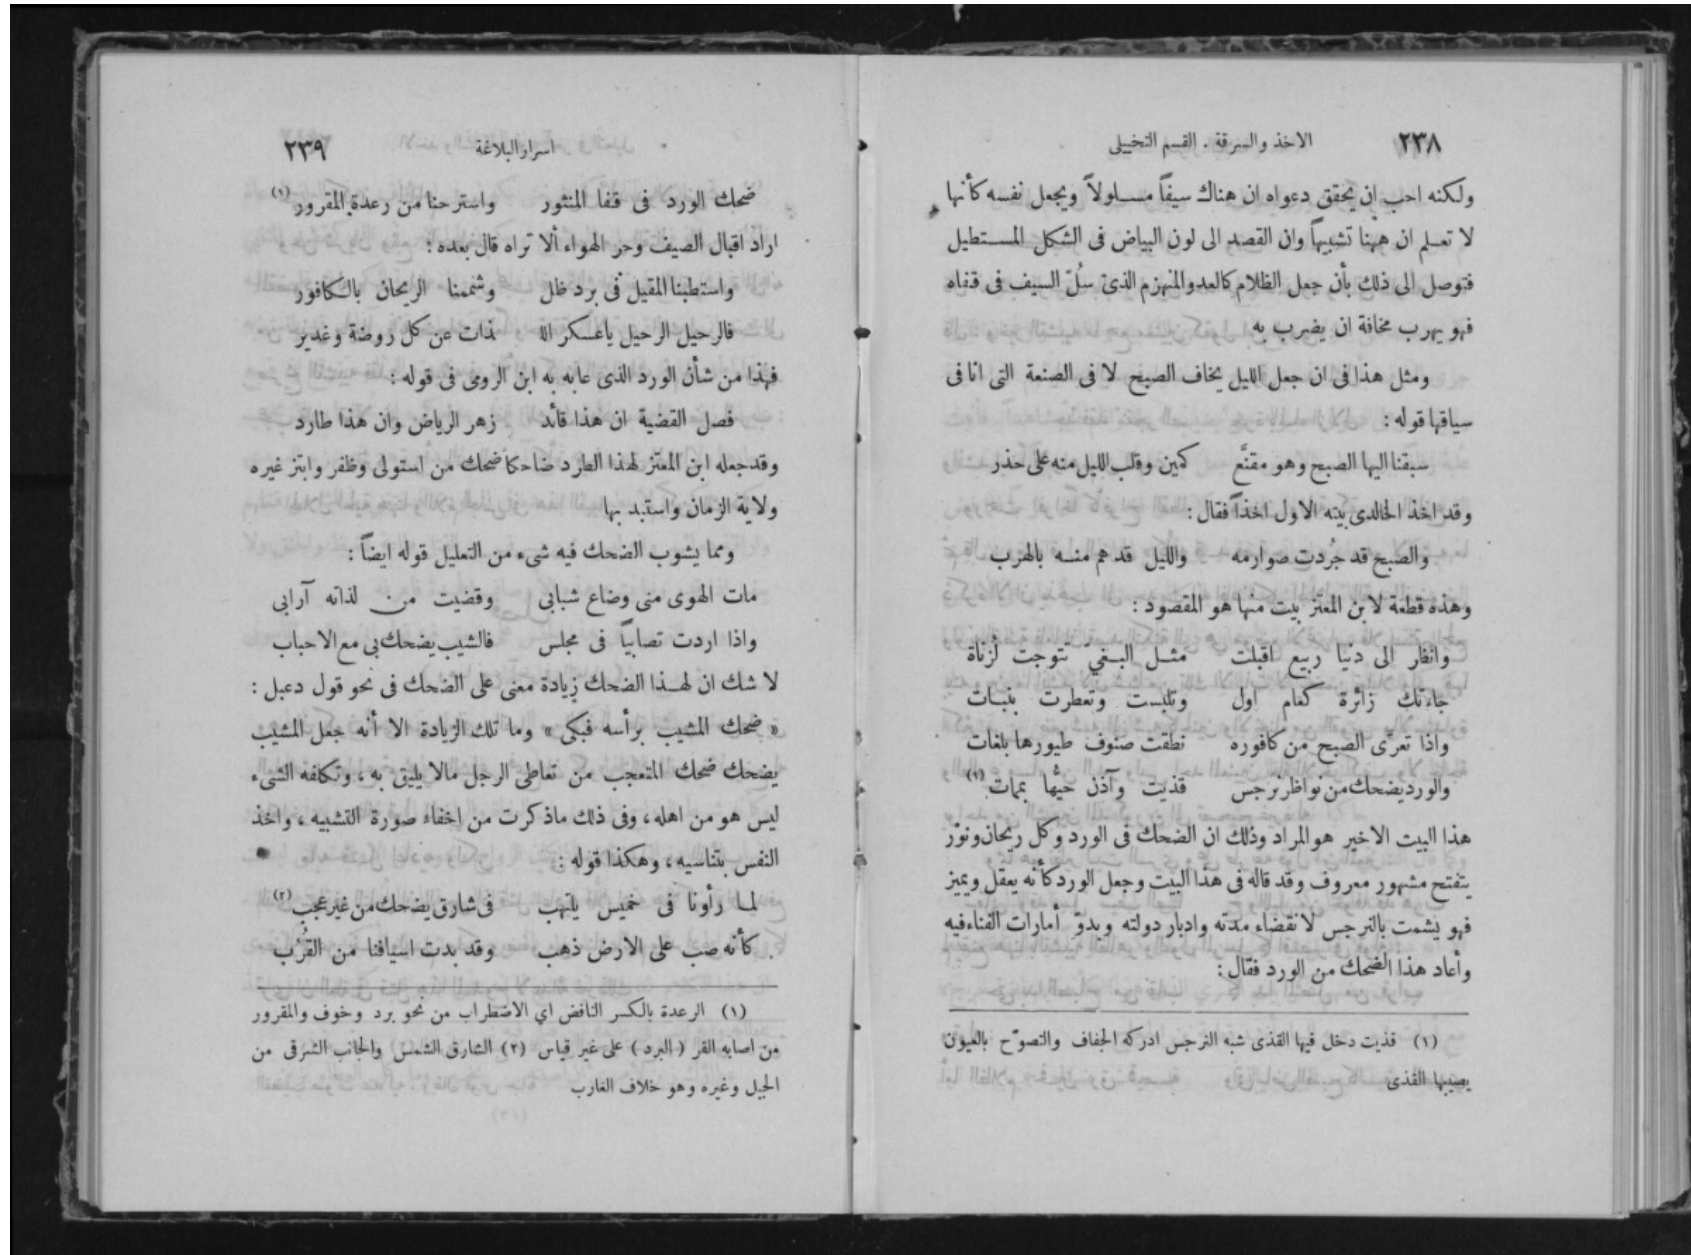 ٢٣٨ الاخذ والسرقة . القسم التخييلى
ولكنه احب ان يحقق دعواه ان هناك سيفاً مسلولاً ويجعل نفسه كأنها
لا تعلم ان ههنا تشبيهاً وان القصد الى لون البياض فى الشكل المستطيل
فتوصل الى ذلك بأن جعل الظلام كالعدو المنهزم الذى سُلّ السيف فى قفاه
فهو يهرب مخافة ان يضرب به
ومثل هذا فى ان جعل الليل يخاف الصبح لا فى الصنعة التى انا فى
سياقها قوله :
سبقنا اليها الصبح وهو مقنَّع كمين وقلب الليل منه على حذر
وقد اخذ الخالدى بيته الاول اخذاً فقال :
والصبح قد جُردت صوارمه والليل قد هم منه بالهرب
وهذه قطعة لابن المعتز بيت منها هو المقصود :
وانظر الى دنيا ربيع اقبلت مثل البغيّ تتوجت لزناة
جاءتك زائرة كعام اول وتلبست وتعطرت بنبات
واذا تعرَّى الصبح من كافوره نطقت صنوف طيورها بلغات
والورد يضحك من نواظر نرجس قذيت وآذن حيُّها بممات (١)
هذا البيت الاخير هو المراد وذلك ان الضحك فى الورد وكل ريحان ونوْر
يتفتح مشهور معروف وقد قاله فى هذا البيت وجعل الورد كأنه يعقل ويميز
فهو يشمت بالنرجس لانقضاء مدته وادبار دولته وبدوّ أمارات الفناء فيه
وأعاد هذا الضحك من الورد فقال :
(١) قذيت دخل فيها القذى شبه النرجس ادركه الجفاف والتصوّح بالعيون
يصيبها القذى
اسرار البلاغة ٢٣٩
ضحك الورد فى قفا المنثور واسترحنا من رعدة المقرور (١)
اراد اقبال الصيف وحر الهواء ألا تراه قال بعده :
واستطبنا المقيل فى برد ظل وشممنا الريحان بالكافور
فالرحيل الرحيل ياعسكر اللا ذات عن كل روضة وغدير
فهذا من شأن الورد الذى عابه به ابن الرومى فى قوله :
فصل القضية ان هذا قائد زهر الرياض وان هذا طارد
وقد جعله ابن المعتز لهذا الطرد ضاحكا ضحك من استولى وظفر وابتز غيره
ولاية الزمان واستبد بها
ومما يشوب الضحك فيه شىء من التعليل قوله ايضاً :
مات الهوى منى وضاع شبابى وقضيت من لذاته آرابى
واذا اردت تصابياً فى مجلس فالشيب يضحك بى مع الاحباب
لا شك ان لهذا الضحك زيادة معنى على الضحك فى نحو قول دعبل :
« ضحك المشيب برأسه فبكى » وما تلك الزيادة الا أنه جعل المشيب
يضحك ضحك المتعجب من تعاطى الرجل مالا يليق به ، وتكلفه الشىء
ليس هو من اهله ، وفى ذلك ماذكرت من اخفاء صورة التشبيه ، واخذ
النفس بتناسيه ، وهكذا قوله :
لما رأونا فى خميس يلتهب فى شارق يضحك من غير عجب (٢)
كأنه صب على الارض ذهب وقد بدت اسيافنا من القُرُب
(١) الرعدة بالكسر النافض اي الاضطراب من نحو برد وخوف والمقرور
من اصابه القر ( البرد ) على غير قياس (٢) الشارق الشمس والجانب الشرقى من
الجبل وغيره وهو خلاف الغارب